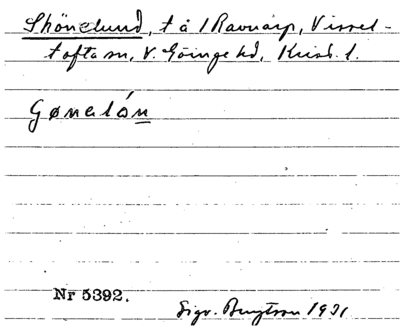 Skönelund, t å 1 Ravnarp, Vissel-
tofta sn, V. Göinge hd, Krist. l.
Gønelón
Nr 5392.
Sigv. Bengtson 1931